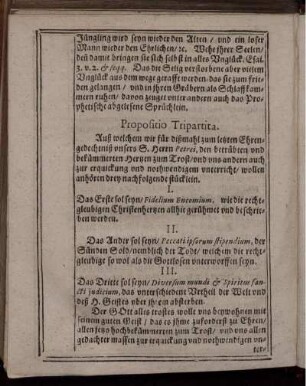 Jüngling wird seyn wieder den Alten / und ein loser
Mann wieder den Ehelichen / ꝛc. Wehe ihrer Seelen /
deñ damit bringen sie sich selbst in alles Unglück / Esai.
3. v. 2. & seqq. Das der Selig verstorbene aber vielem
Unglück aus dem wege geraffe worden / das sie zum frie-
den gelangen / und in ihren Gräbern als Schlaffkam-
mern ruhen / davon zeuget unter anderen auch das Pro-
phetische abgelesene Sprüchlein.
Propositio Tripartita.
Auß welchem wir für dißmahl zum letzten Ehren-
gedechtnis unsers S. Herrn Petrei, den betrübten und
bekümmerten Hertzen zum Trost / und uns andern auch
zur erquickung und nothwendigem unterricht / wollen
anhören drey nachfolgende stücklein.
I.
Das Erste sol seyn / Fidelium Encomium, wie die recht-
gleubigen Christenhertzen allhie gerühmet und beschrie-
ben werden.
II.
Das Ander sol seyn / Peccati ipsorum stipendium, der
Sünden Sold / nemblich der Todt / welchem die recht-
gleubige so wol als die Gottlosen unterworffen seyn.
III.
Das Dritte sol seyn / Diversum mundi & Spiritus san-
cti judicium, das unterschiedene Vrtheil der Welt und
deß H. Geistes uber ihr absterben.
Der GOtt alles trostes wolle uns beywohnen mit
seinem guten Geist / das es ihme zuforderst zu Ehren /
allen jetzo hochbekümmerten zum Trost / und uns allen
gedachter massen zur erquickung und nothwendigen un-
ter-